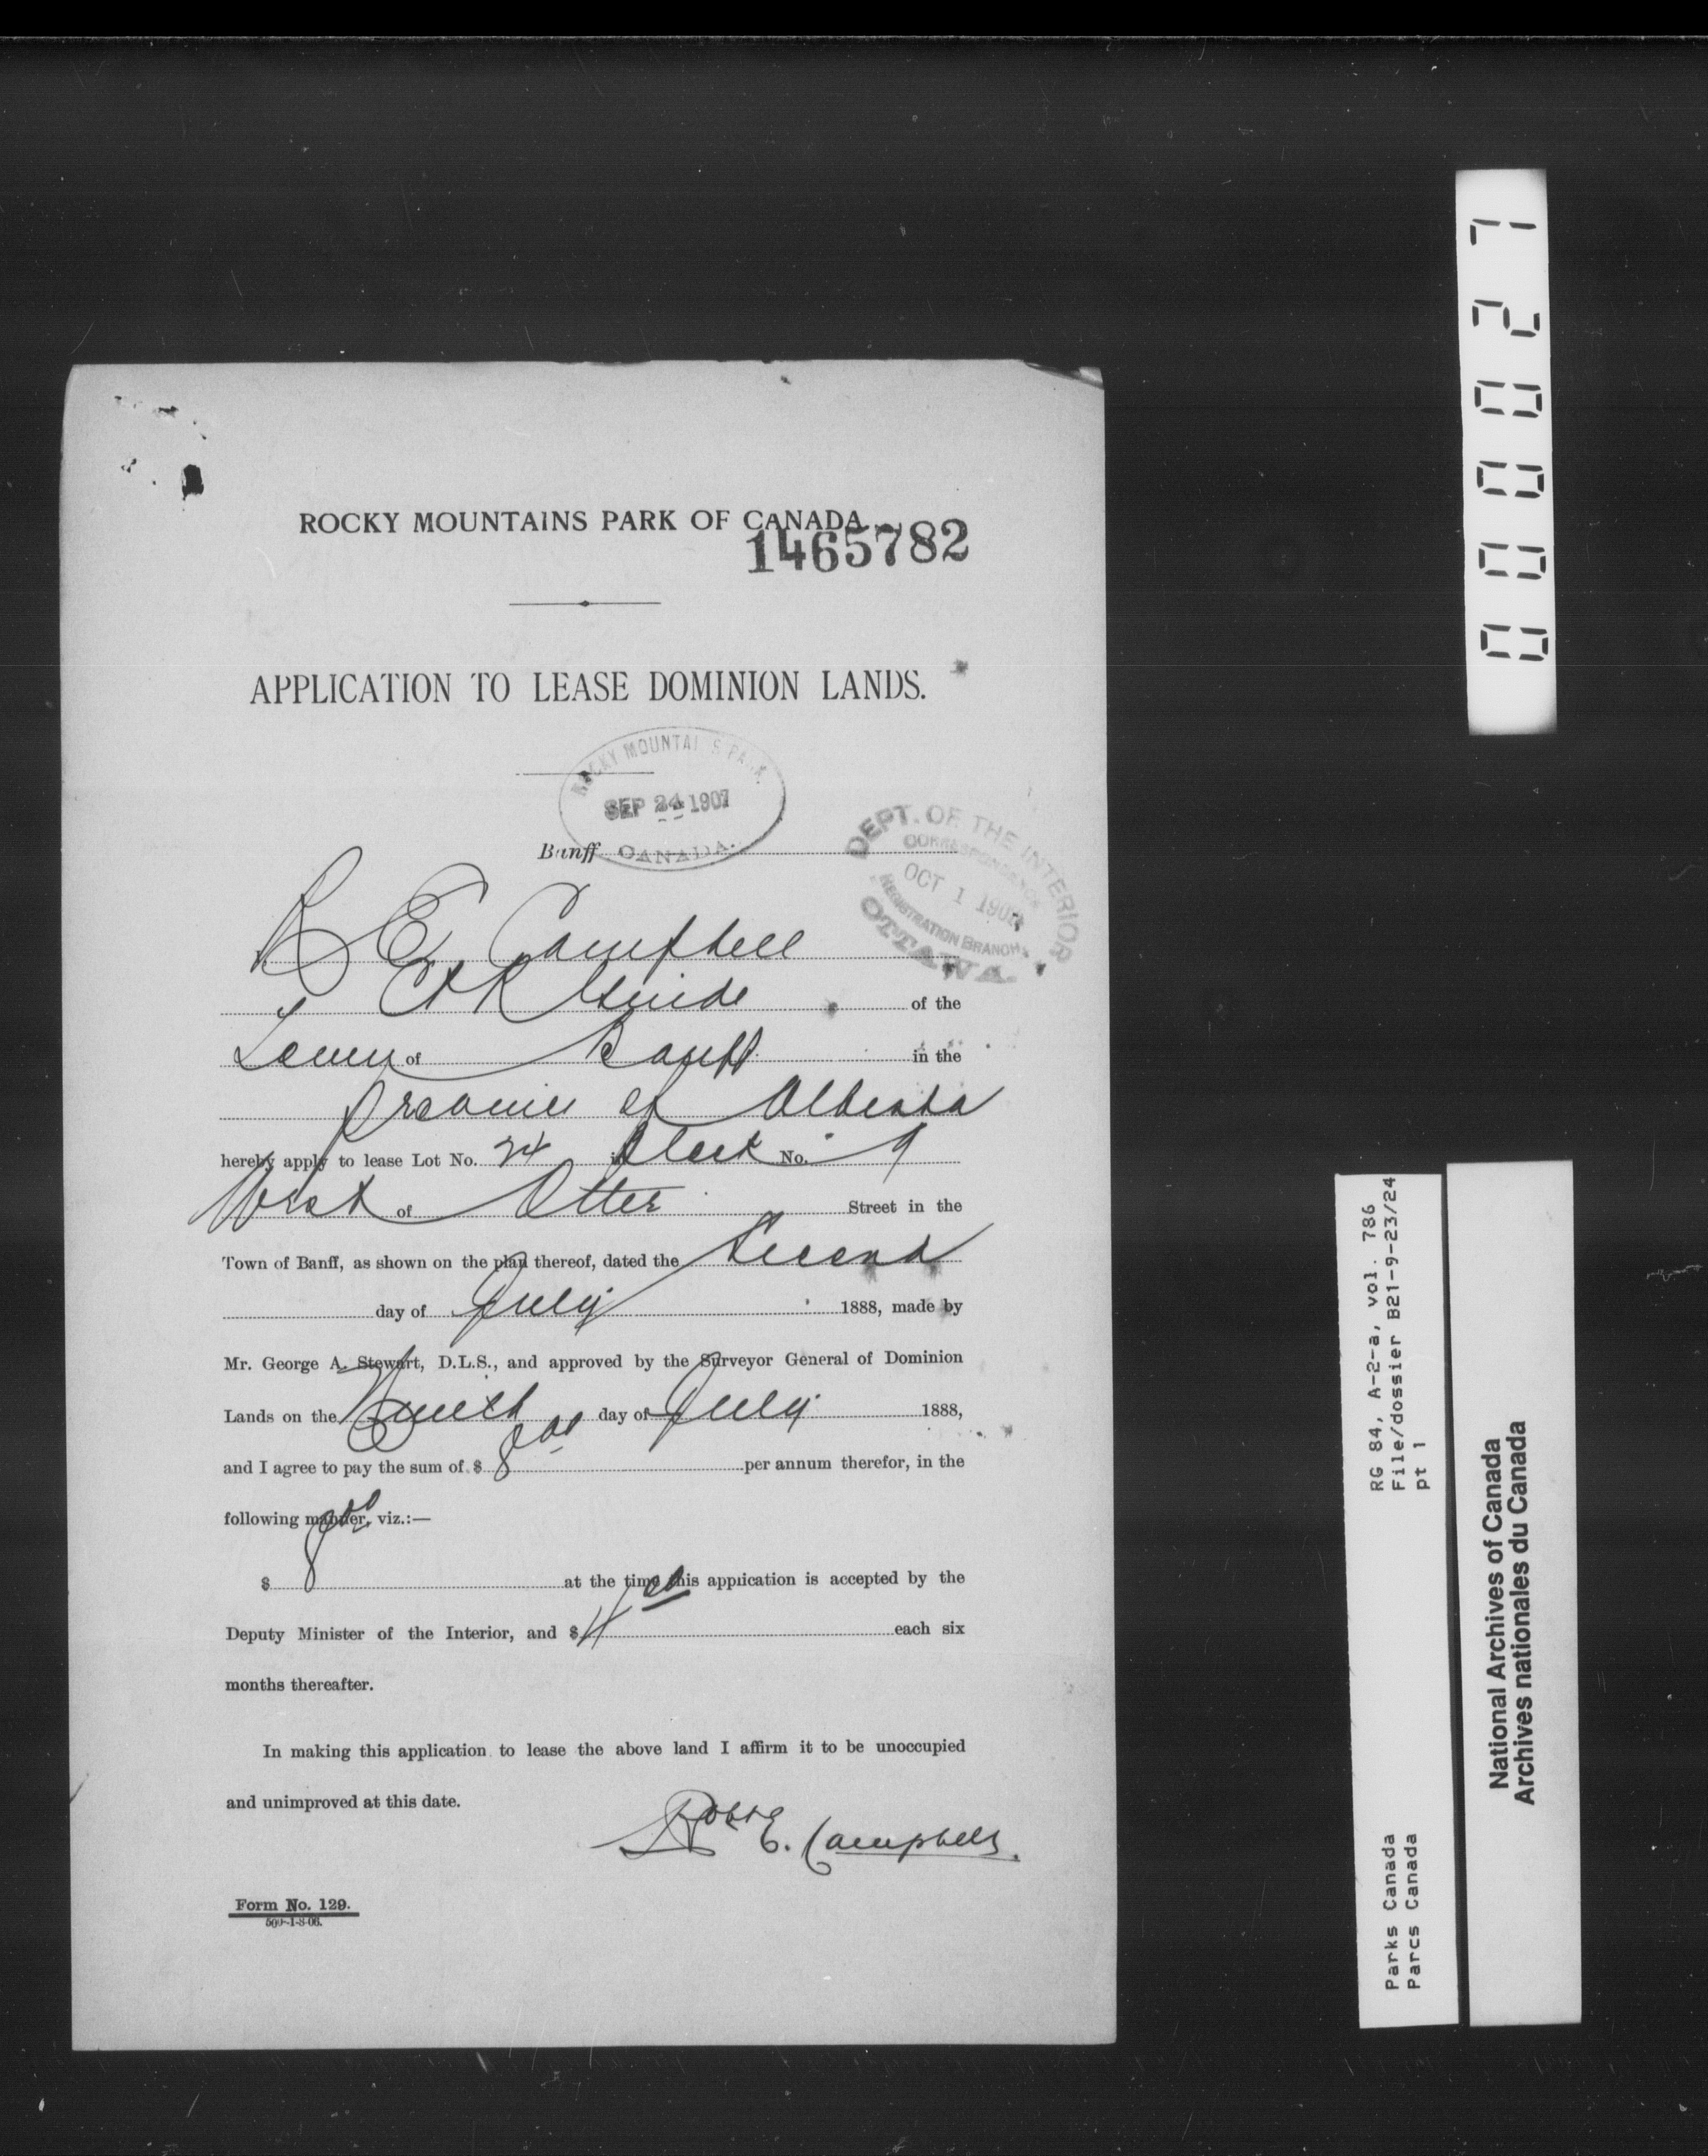 ROCKY MOUNTAINS PARK OF CANADA
1465782
APPLICATION TO LEASE DOMINION LANDS.
ROCKY MOUNTAI S PARK.
SEP 24 1907
CANADA.
Banff
DEPT. OF THE INTERIOR
CORRESPONDENCE
OCT 1 1907
REGISTRATION BRANCH
OTTAWA.
R E Campbell
Guide of the
Town of Banff in the
Province of Alberta
hereby apply to lease Lot No. 24 in Block No. 9
West of Otter Street in the
Town of Banff, as shown on the plan thereof, dated the Second
day of July 1888, made by
Mr. George A. Stewart, D.L.S., and approved by the Surveyor General of Dominion
Lands on the day of July 1888,
and I agree to pay the sum of $ 8 00 per annum therefor, in the
following manner, viz.:—
$ 8 00 at the time this application is accepted by the
Deputy Minister of the Interior, and $ 4 00 each six
months thereafter.
In making this application to lease the above land I affirm it to be unoccupied
and unimproved at this date.
Robt E. Campbell.
Form No. 129.
500-1-8-06.
000027
RG 84, A-2-a, vol. 786
File/dossier B21-9-23/24
pt 1
Parks Canada
Parcs Canada
National Archives of Canada
Archives nationales du Canada